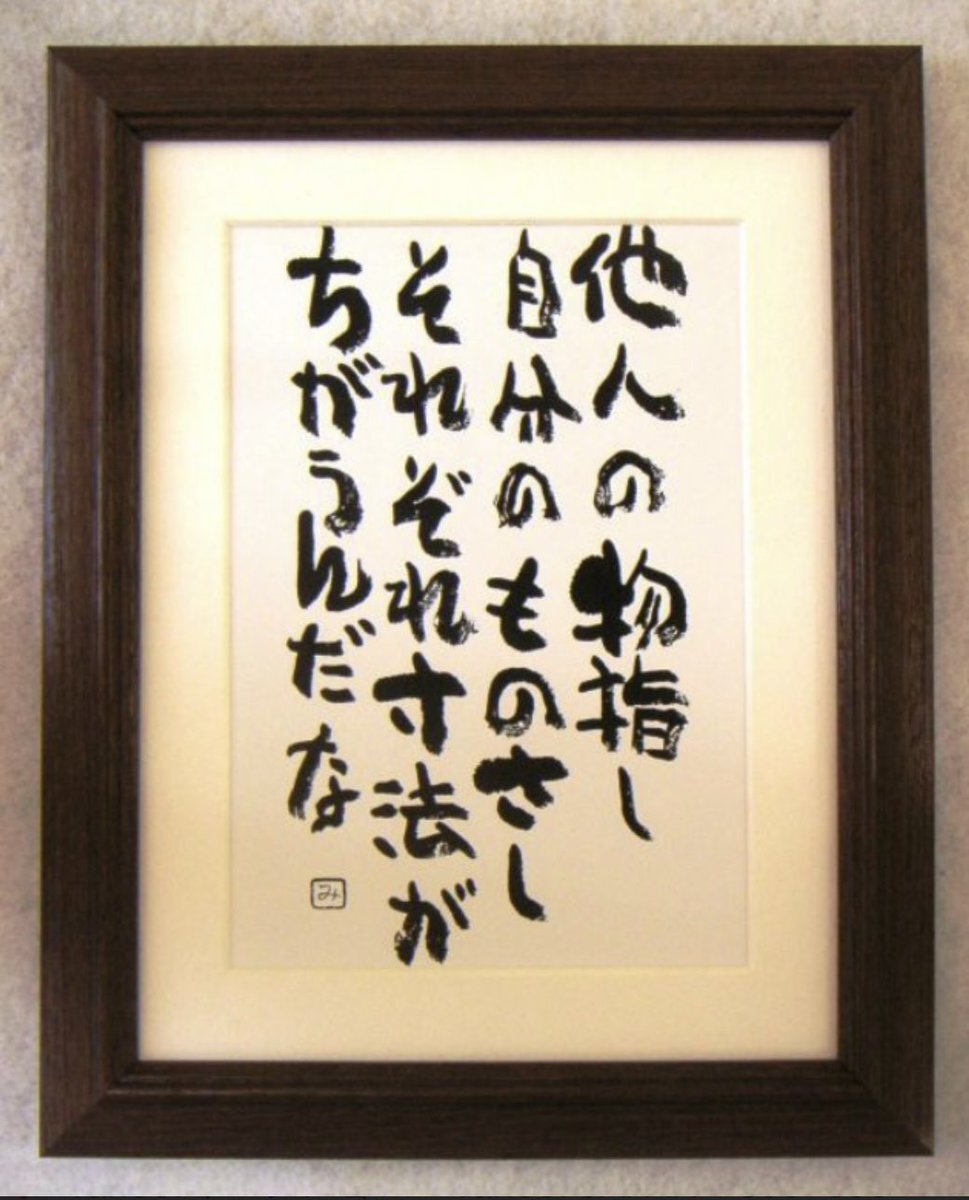 他人の物指し
自分のものさし
それぞれ寸法が
ちがうんだな
み